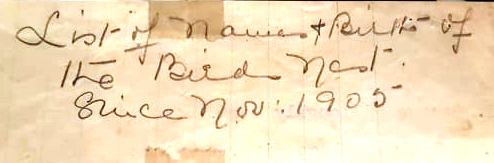 List of Names & Births of
the Birds Nest.
Since Nov. 1905